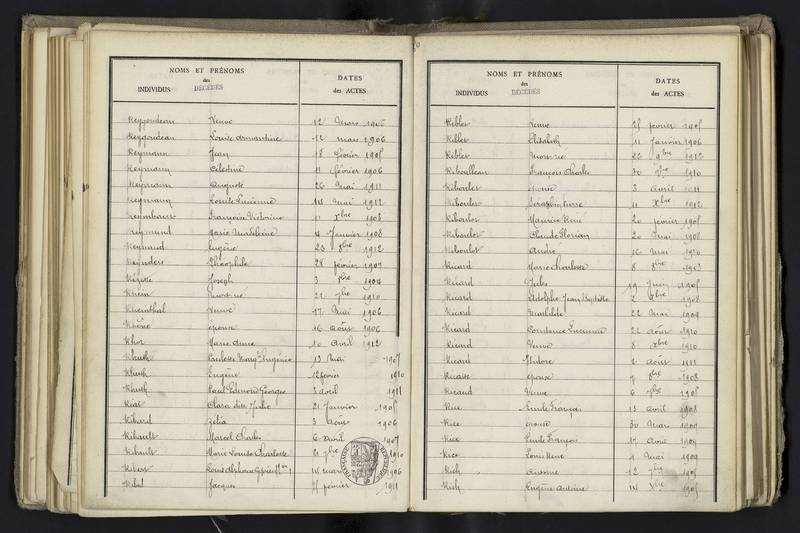 NOMS ET PRÉNOMS
des
DÉCÉDÉS
INDIVIDUS
DATES
des ACTES
Reygondeau Veuve 12 Mars 1906
Reygondeau Louise Armantine 12 mars 1906
Reymann Jean 18 février 1905
Reymann Célestine 11 février 1906
Reymann Auguste 26 Mai 1911
Reymann Louise Lucienne 14 Mai 1912
Françoise Victorine 11 Xbre 1908
Reymund Marie Madeleine 4 Janvier 1908
Reynaud Eugénie 23 8bre 1912
Reynders Théophile 28 février 1907
Joseph 3
Rhein Mort né 22 7bre 1910
Rheinthal Veuve 17 Mai 1906
Rhône épouse 16 Août 1906
Rhor Marie Anne 10 Avril 1912
13 Mai 1905
Eugène 12 février 1910
Paul Edmond Georges 3 avril 1911
Rial Clara dite Julie 21 Janvier 1905
Ribard Zélia 3 Août 1906
Ribault Marcel Charles 6 avril 1907
Ribault Marie Louise Charlotte 21 7bre 1910
Ribert 14 mars 1906
Ribet Jacques février 1911
NOMS ET PRÉNOMS
des
DÉCÉDÉS
INDIVIDUS
DATES
des ACTES
Riblet Veuve 25 février 1905
Riblet Elisabeth 11 Janvier 1906
Riblet Mort né 26 9bre 1912
Riboulleau François Charles 30 1910
Riboulet épouse 3 Avril 1911
Riboulet Séraphin Pierre 11 Xbre 1912
Riboulot Maurice René 20 février 1905
Riboulot Claude Florian 20 Mai 1908
Riboulot André 16 Mai 1910
Ricard Marie Charlotte 8 8bre 1903
Ricard Jules 19 Juin 1905
Ricard Adolphe Jean Baptiste 2 Xbre 1908
Ricard Mathilde 22 Mai 1909
Ricard Constance Lucienne 22 Août 1910
Ricard Veuve 8 Xbre 1910
Ricard Isidore 2 Août 1911
épouse 7 8bre 1908
Ricaud Veuve 6 7bre 1905
Rice Emile François 13 avril 1908
Rice épouse 30 Mars 1909
Rice Emile François 17 Avril 1909
Rice Louis René 4 Mai 1909
Rich Antoine 12 7bre 1905
Rich Eugène Antoine 14 Xbre 1905